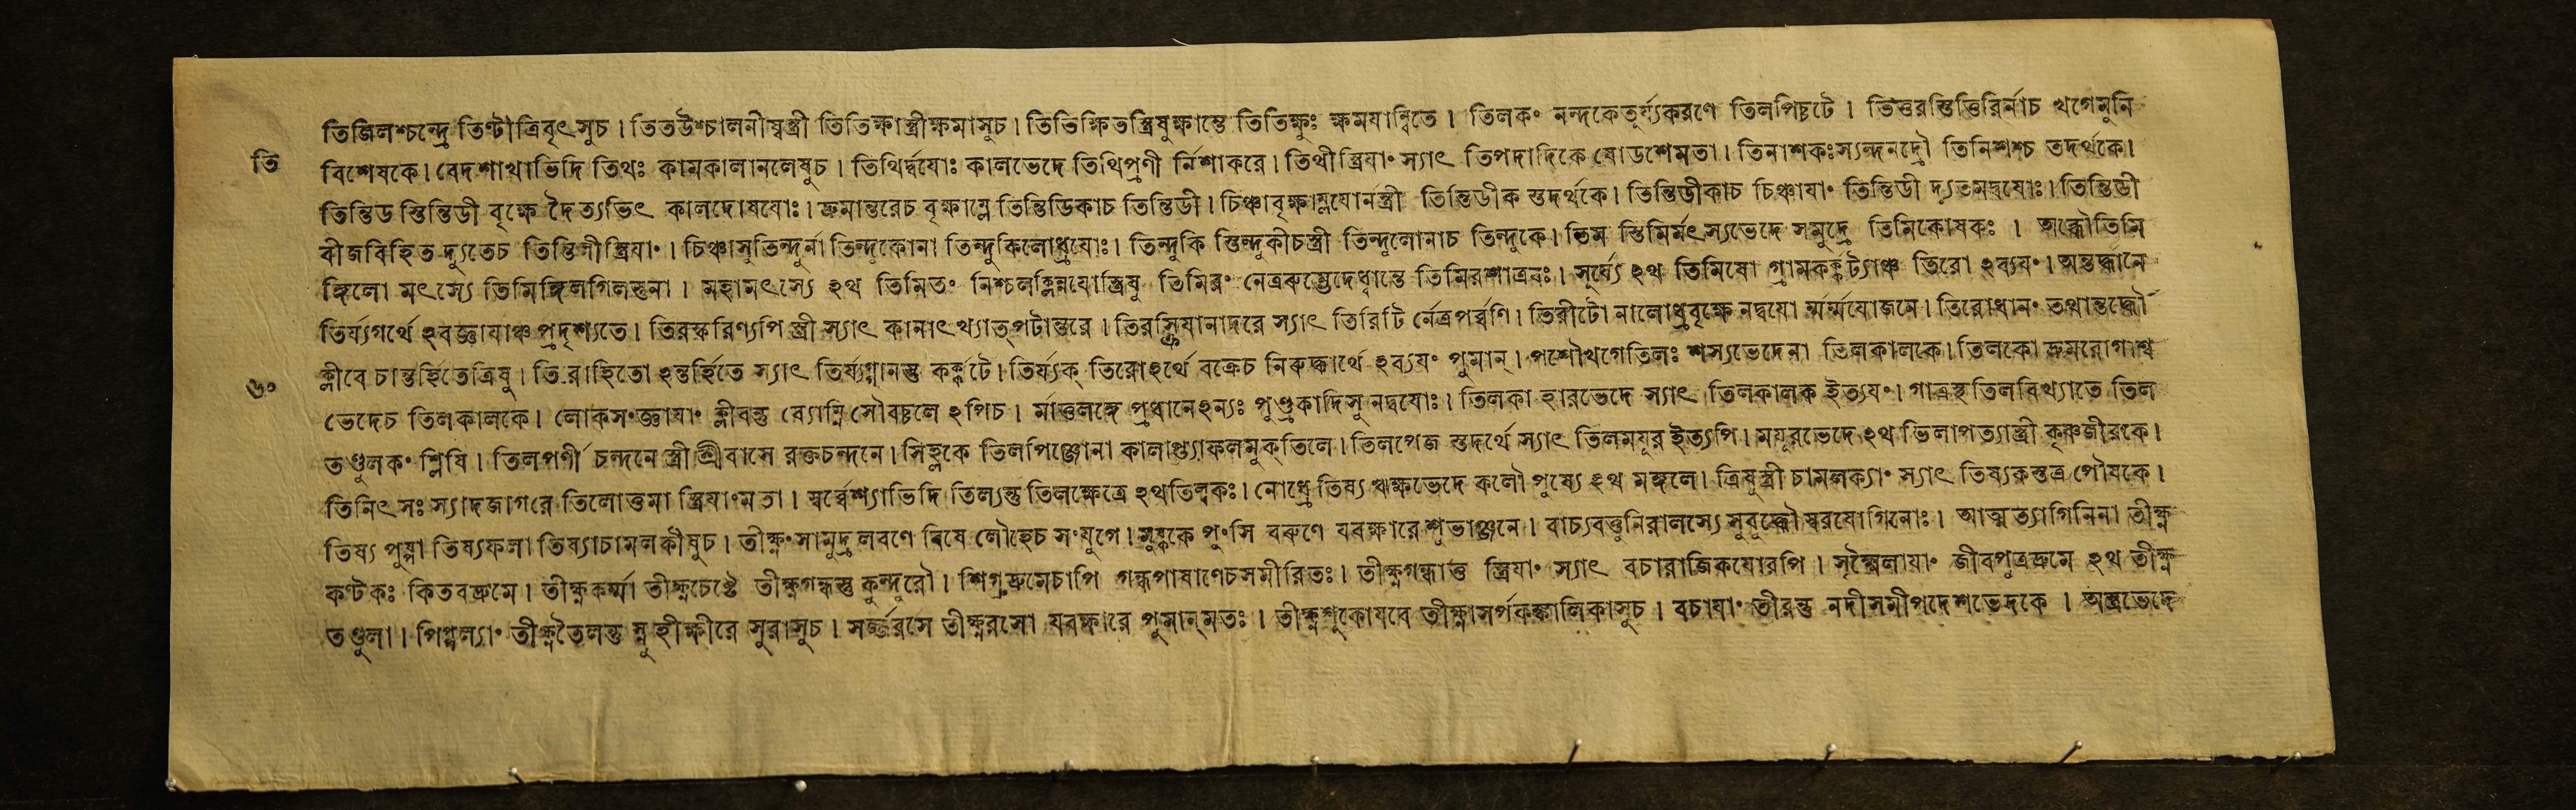 তিজিলশ্চন্দ্রে তিণ্টীত্রিবৃৎসুচ। তিতউশ্চালনীস্বস্ত্রী তিতিক্ষাস্ত্রীক্ষমাসুচ। তিতিক্ষিতস্ত্রিষুক্ষান্তে তিতিক্ষুঃ ক্ষমযান্বিতে। তিলকং নন্দকেতূর্য্যকরণে তিলপিচ্চটে। তিত্তরস্তিত্তিরির্নাচ খগেমুনি
তি
বিশেষকে। বেদশাখাভিদি তিথঃ কামকালানলেষুচ। তিথির্দ্বযোঃ কালভেদে তিথিপ্রণী র্নিশাকরে। তিথীস্ত্রিযাং স্যাৎ তিপদাদিকে ষোডশেমতা। তিনাশকঃস্যন্দনদ্রৌ তিনিশশ্চ তদর্থকে।
তিন্তিড স্তিন্তিডী বৃক্ষে দৈত্যভিৎ কালদোষযোঃ। দ্রুমান্তরেচ বৃক্ষাম্লে তিন্তিডিকাচ তিন্তিডী। চিঞ্চাবৃক্ষাম্লযোর্নস্ত্রী তিন্তিডীক স্তদর্থকে। তিন্তিডীকাচ চিঞ্চাযাং তিন্তিডী দ্যূতমদ্বযোঃ। তিন্তিডী
বীজবিহিত দ্যুতেচ তিন্তিলীস্ত্রিযাং। চিঞ্চাসুতিন্দুর্না তিন্দুকোনা তিন্দুকিলোধ্রযোঃ। তিন্দুকি স্তিন্দুকীচস্ত্রী তিন্দুলোনাচ তিন্দুকে। তিম স্তিমির্মৎস্যভেদে সমুদ্রে তিমিকোষকঃ । অব্ধৌতিমি
ঙ্গিলো মৎস্যে তিমিঙ্গিলগিলস্তুনা। মহামৎস্যে ঽথ তিমিতং নিশ্চলক্লিন্নযোস্ত্রিষু তিমিরং নেত্ররুগ্ভেদেধ্বান্তে তিমিরশাত্রবঃ। সূর্য্যে ঽথ তিমিষো গ্রামকর্ক্কট্যাঞ্চ তিরো ঽব্যযং। অন্তর্দ্ধানে
তির্য্যগর্থে ঽবজ্ঞাযাঞ্চপ্রদৃশ্যতে। তিরস্করিণ্যপি স্ত্রী স্যাৎ কানাৎখ্যাত্পটান্তরে। তিরস্ক্রিযানাদরে স্যাৎ তিরিটি র্নেত্রপর্ব্বণি। তিরীটো নালোধ্রবৃক্ষে নদ্বযো র্ম্মর্ম্মযোজনে। তিরোধানং তথান্তর্দ্ধৌ
৬০
ক্লীবে চান্তর্হিতেত্রিষু। তি.রাহিতো ঽন্তর্হিতে স্যাৎ তির্য্যগ্যানস্তু কর্ক্কটে। তির্য্যক্ তিরোঽর্থে বক্রেচ নিরুদ্ধার্থে ঽব্যযং পুমান্। পশৌখগেতিলঃ শস্যভেদেনা তিলকালকে। তিলকো দ্রুমরোগাশ্ব
ভেদেচ তিলকালকে। লোকসংজ্ঞাযাং ক্লীবন্তু ব্যোম্নি সৌবর্চ্চলে ঽপিচ। র্মাত্তলঙ্গে প্রধানেঽন্যঃ পুণ্ড্রকাদিসু নদ্বযোঃ। তিলকা হারভেদে স্যাৎ তিলকালক ইত্যযং। গাত্রস্থতিলবিখ্যাতে তিল
তণ্ডুলকং শ্লিষি। তিলপর্ণী চন্দনে স্ত্রী শ্রীবাসে রক্তচন্দনে। সিহ্লকে তিলপিঞ্জোনা কালাখ্যাফলমুক্তিলে। তিলপেজ স্তদর্থে স্যাৎ তিলমযূর ইত্যপি। মযূরভেদে ঽথ তিলাপত্যাস্ত্রী কৃষ্ণজীরকে।
তিনিৎসঃ স্যাদজাগরে তিলোত্তমা স্ত্রিযাংমতা। স্বর্ব্বেশ্যাভিদি তিল্যন্তু তিলক্ষেত্রে ঽথতিল্বকঃ। লোধ্রে তিষ্য ঋক্ষভেদে কলৌ পুষ্যে ঽথ মঙ্গলে। ত্রিষুস্ত্রী চামলক্যাং স্যাৎ তিষ্যকস্তত্র পৌষকে।
তিষ্য পুষ্পা তিষ্যফলা তিষ্যাচামলকীষুচ। তীক্ষ্ণংসামুদ্রলবণে বিষে লৌহেচ সংযুগে। মুষ্ককে পুংসি বরুণে যবক্ষারে শুভাঞ্জনে। বাচ্যবত্তুনিরালস্যে সুবুদ্ধৌস্বরযোগিনোঃ। আত্মত্যাগিনিনা তীক্ষ্ণ
কণ্টকঃ কিতবদ্রুমে। তীক্ষ্ণকর্ম্মা তীক্ষ্ণচেষ্টে তীক্ষ্ণগন্ধস্তু কুন্দুরৌ। শিগ্রুদ্রুমেচাপি গন্ধপাষাণেচসমীরিতঃ। তীক্ষ্ণগন্ধাতু স্ত্রিযাং স্যাৎ বচারাজিকযোরপি। সূক্ষ্মৈলাযাং জীবপুত্রদ্রুমে ঽথ তীক্ষ্ণ
তণ্ডুলা। পিপ্পল্যাং তীক্ষ্ণতৈলন্তু স্নুহীক্ষীরে সুরাসুচ। সর্জ্জরসে তীক্ষ্ণরসো যবক্ষারে পুমান্মতঃ। তীক্ষ্ণশূকোযবে তীক্ষ্ণাসর্পকঙ্কালিকাসুচ। বচাযাং তীরন্তু নদীসমীপদেশভেদকে । অস্ত্রভেদে